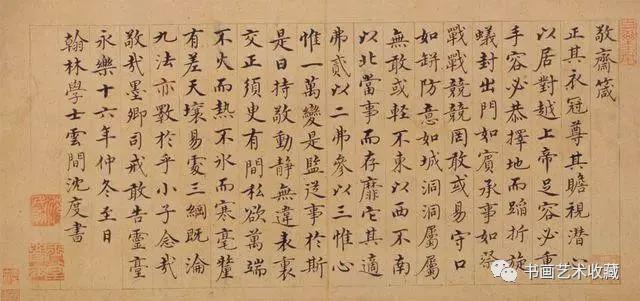 敬齋箴
正其衣冠尊其瞻視潛心
以居對越上帝足容必重
手容必恭擇地而蹈折旋
蟻封出門如賓承事如祭
戰戰兢兢罔敢或易守口
如缾防意如城洞洞屬屬
無敢或輕不東以西不南
以北當事而存靡它其適
弗貳以二弗參以三惟心
惟一萬變是監從事於斯
是曰持敬動靜無違表裏
交正須臾有間私欲萬端
不火而熱不氷而寒毫釐
有差天壤易處三綱既淪
九法亦斁於乎小子念哉
敬哉墨卿司戒敢告靈臺
永樂十六年仲冬至日
翰林學士雲間沈度書
书画艺术收藏